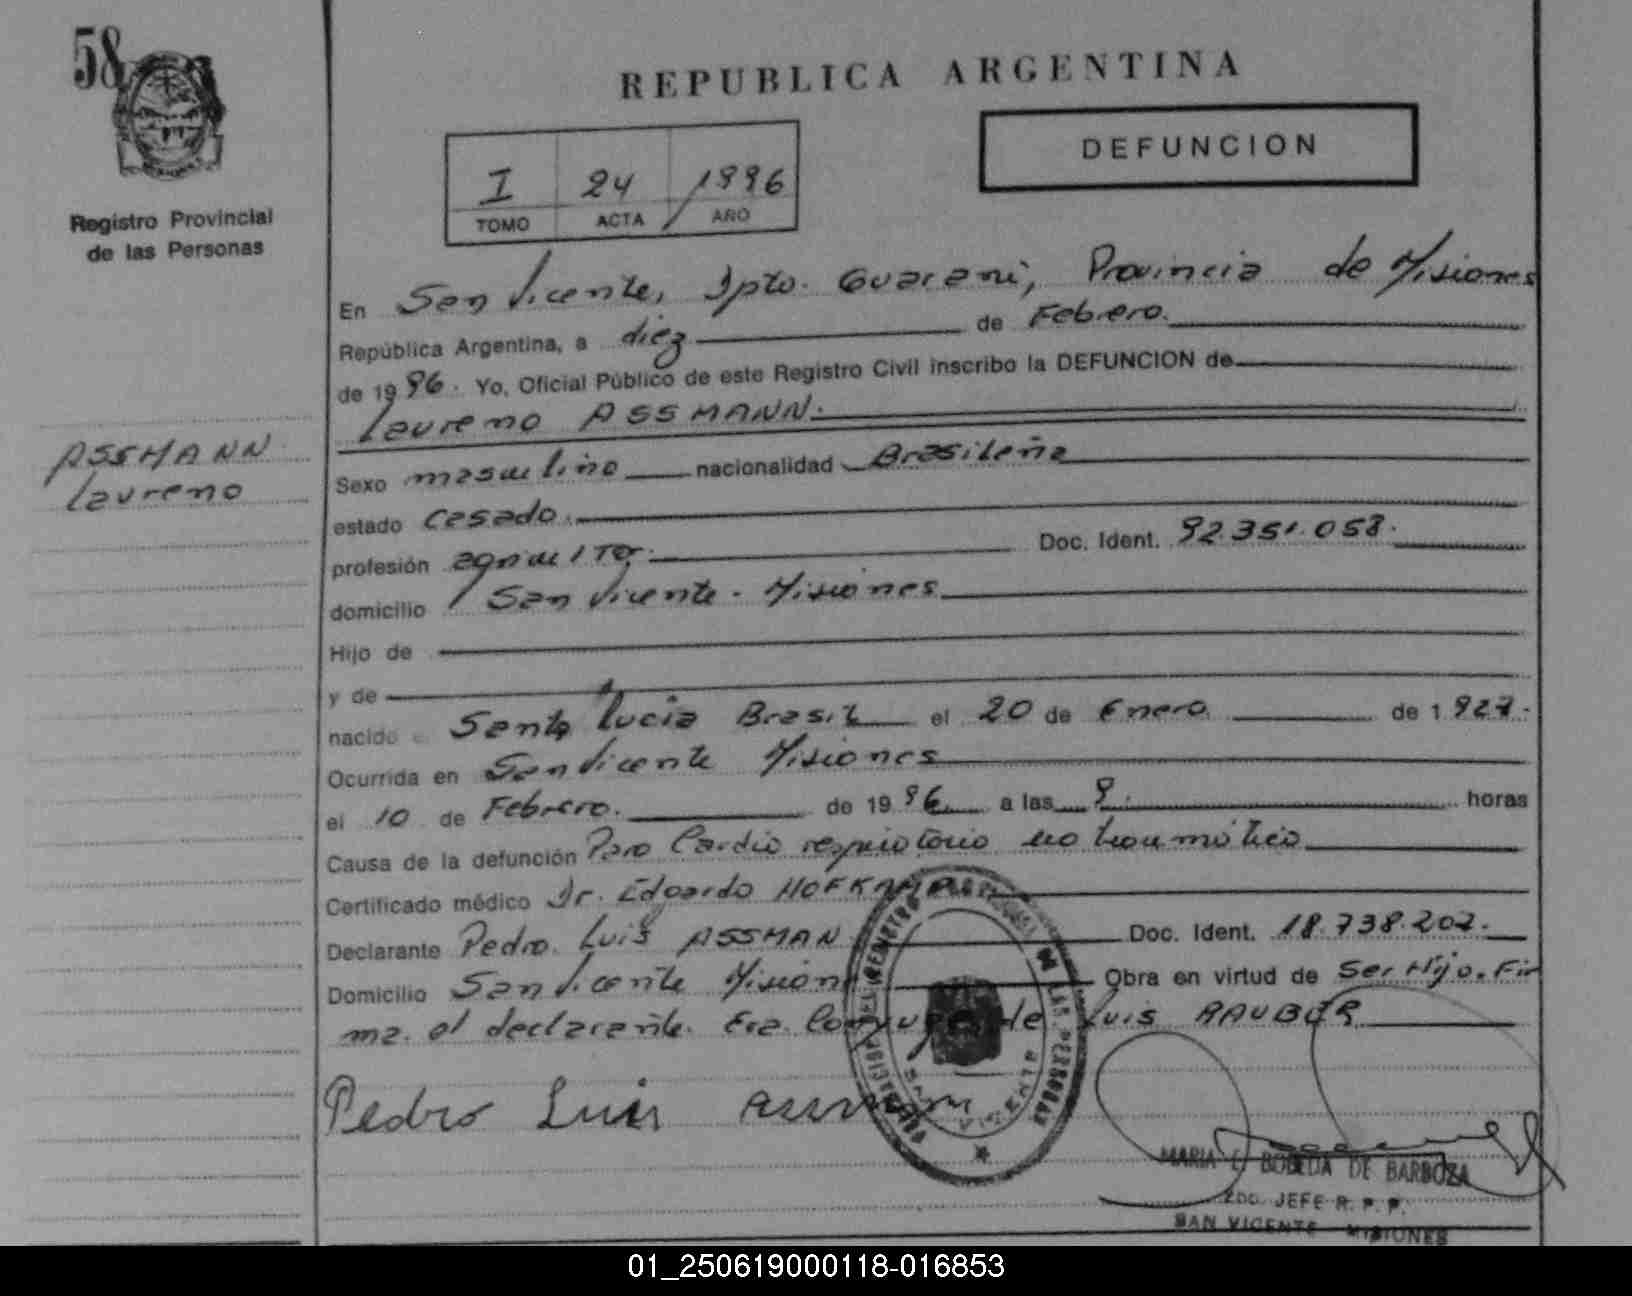 58
REPUBLICA ARGENTINA
DEFUNCION
I 24 / 1996
TOMO ACTA AÑO
Registro Provincial
de las Personas
En San Vicente, Dpto. Guarani, Provincia de Misiones
República Argentina, a diez de Febrero.
de 1996. Yo, Oficial Público de este Registro Civil inscribo la DEFUNCION de
Laureno ASSMANN.
ASSMANN
Laureno
Sexo masculino nacionalidad Brasileña
estado casado.
profesión agricultor. Doc. Ident. 92.351.058.
domicilio San Vicente - Misiones
Hijo de
y de
nacido e Santa Lucia Brasil el 20 de Enero de 1.927.
Ocurrida en San Vicente Misiones
el 10 de Febrero. de 1996 a las 9. horas
Causa de la defunción Paro Cardio respiratorio no traumático
Certificado médico Dr. Edoardo
Declarante Pedro Luis ASSMAN Doc. Ident. 18.738.202.
Domicilio San Vicente Mision Obra en virtud de Ser Hijo. Fir
ma. el declarante. Era Conyuge de Luis RAUBER
Pedro Luis
REGISTRO PROVINCIAL DE LAS PERSONAS
SAN VICENTE
MARIA E. BOBEDA DE BARBOZA
2DO. JEFE R. P. P.
SAN VICENTE MISIONES
01_250619000118-016853